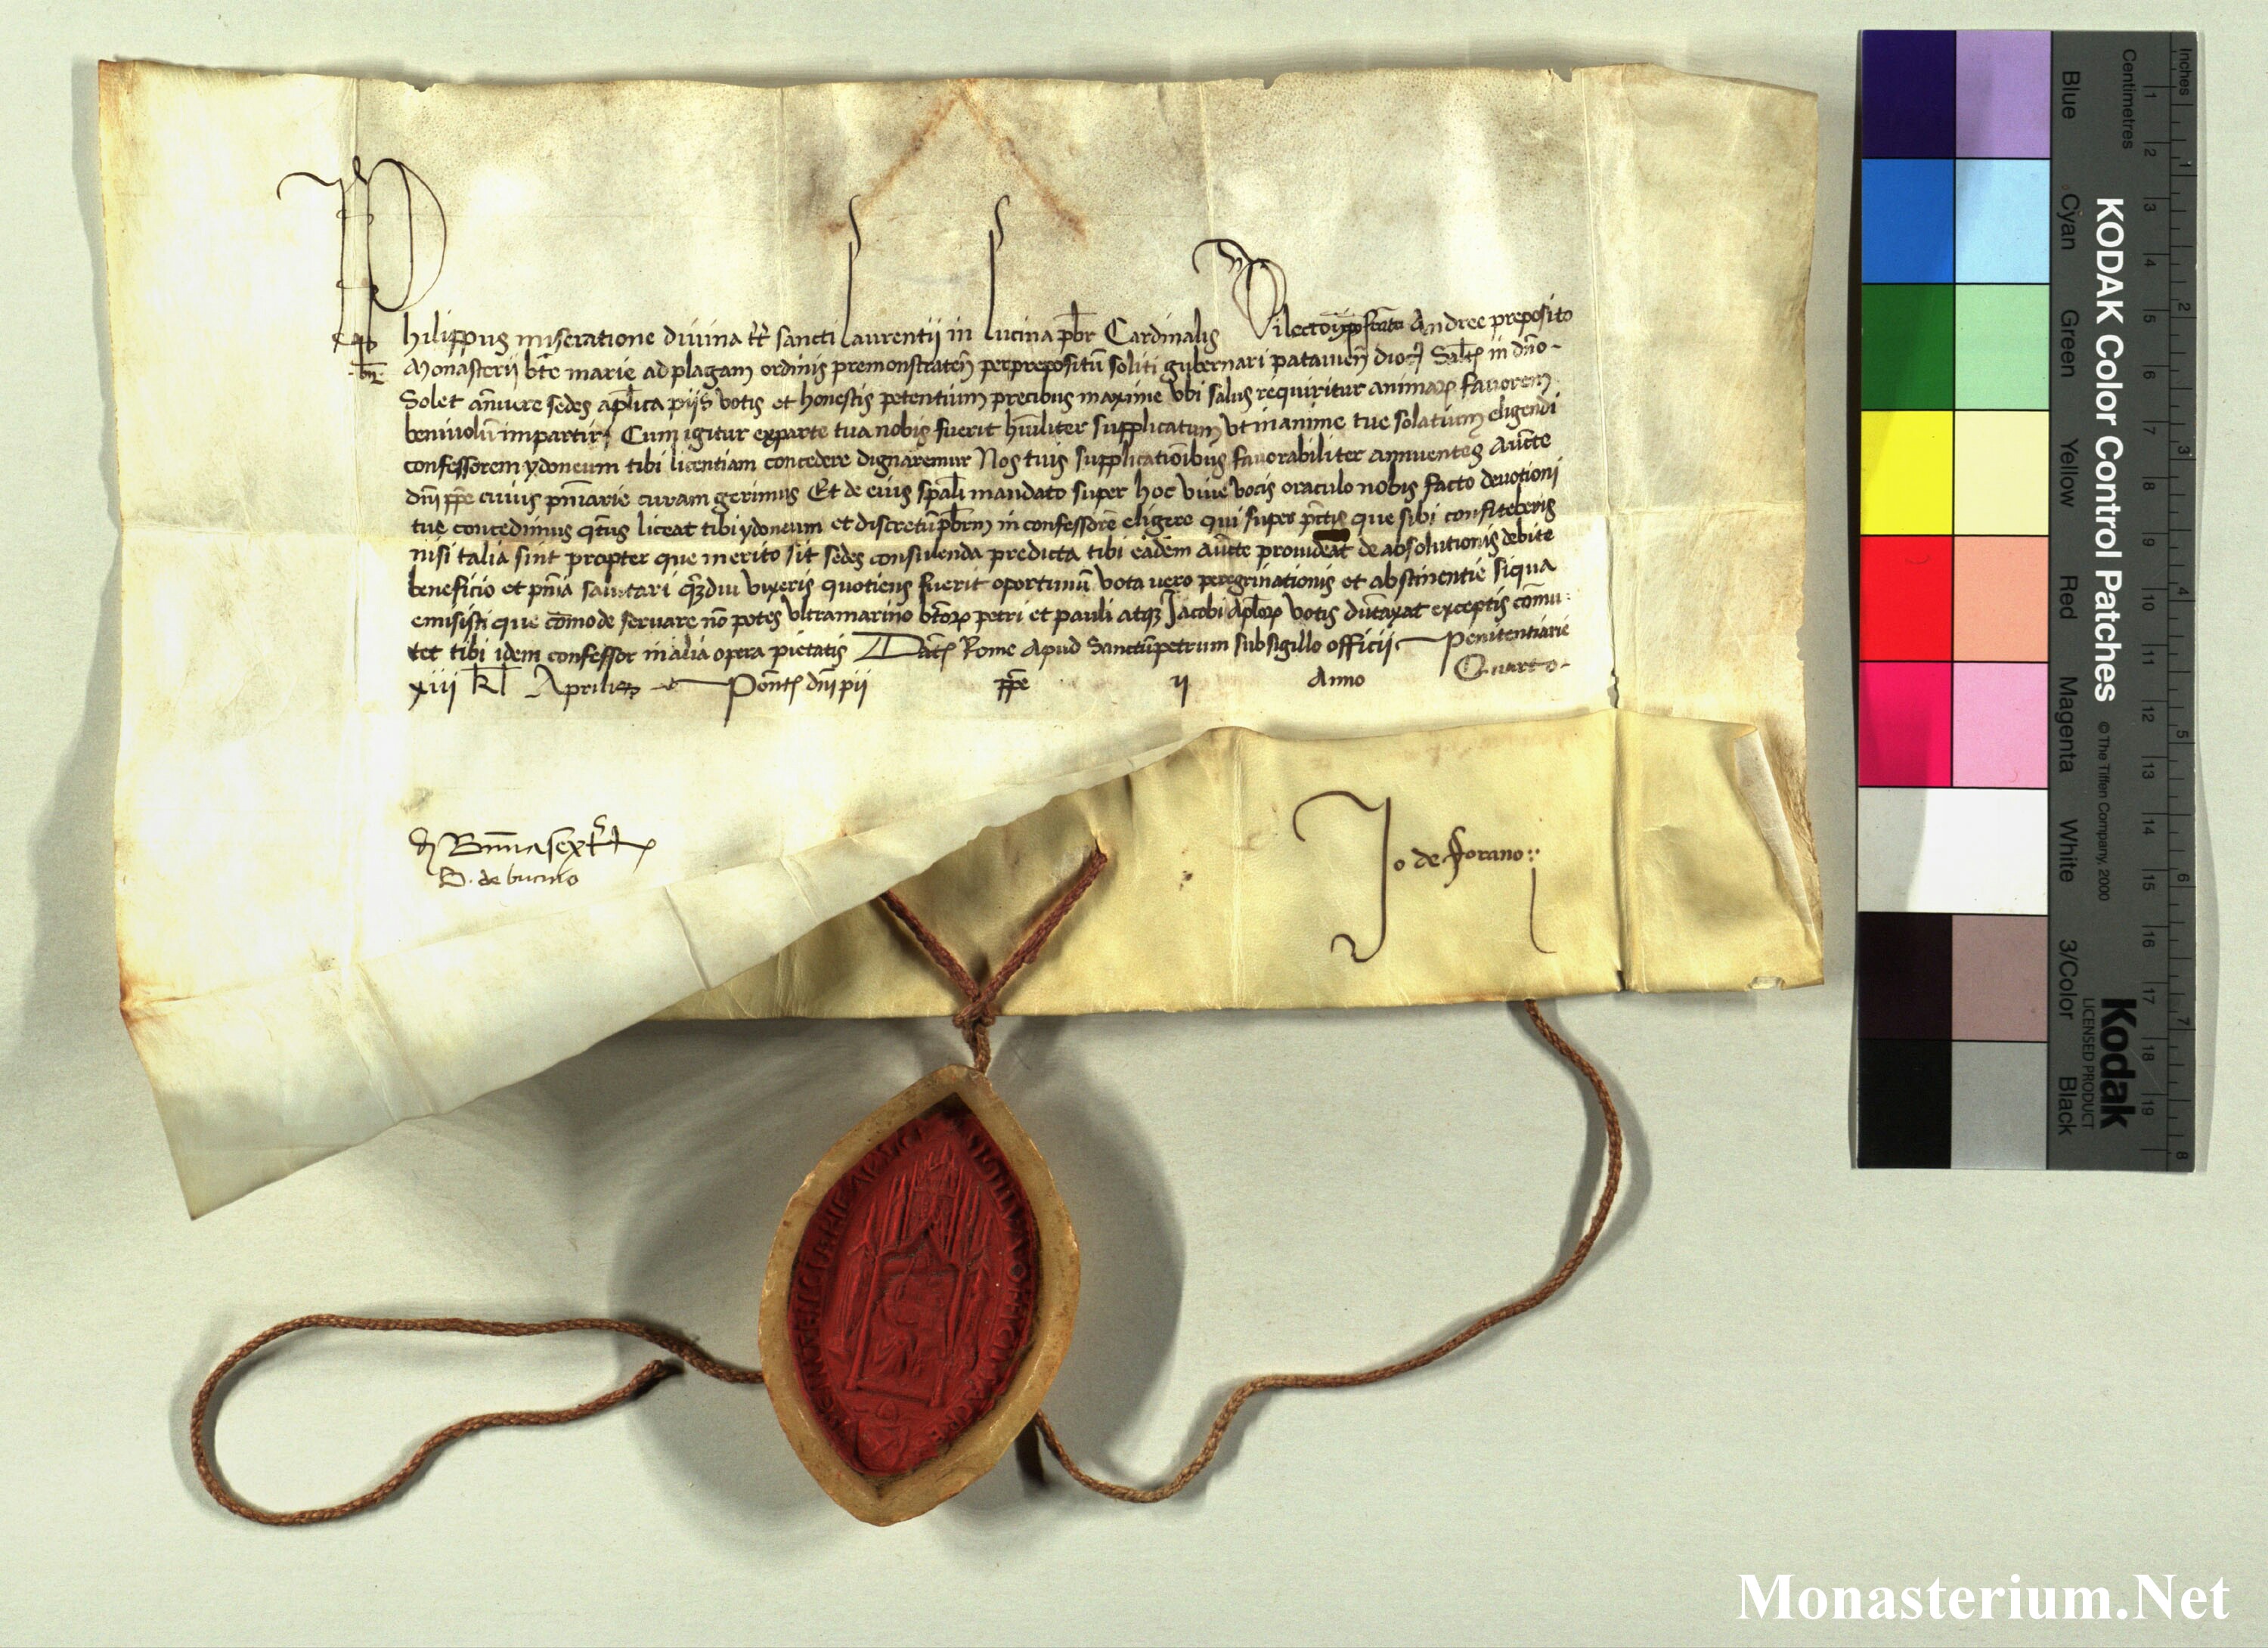 Philippus miseratione divina tt̄ sancti Laurentii in Lucina pb̄r Cardinalis Dilecto Andree preposito
Monasterij bt̄e marie ad plagam ordinis premonstrateñ per prepositū soliti gubernari patavieñ dioc̄ Salt̄ in dn̄o
Solet an̄uere sedes ap̄lica piis votis et honestis petentium precibus maxime vbi salus requiritur animaꝝ favorem
benivolū impartiri Cum igitur ex parte tua nobis fuerit hūiliter supplicatum vt in anime tue solatium eligendi
confessorem ydoneum tibi licentiam concedere dignaremur Nos tuis supplicatiōibus favorabiliter annuentes auc̄te
dn̄i pp̄e cuius pn̄iarie curam gerimus Et de eius sp̄ali mandato super hoc vive vocis oraculo nobis facto devotioni
tue concedimus qt̄us liceat tibi ydoneum et discretū pb̄rm in confessorē eligere qui super pc̄tis que sibi confiteberis
nisi talia sint propter que merito sit sedes consulenda predicta tibi eadem auc̄te provideat de absolutionis debite
beneficio et pn̄ia salutari qm̄diu vixeris quotiens fuerit oportunū vota vero peregrinationis et abstinentie siqua
emisisti que cōmode servare nō potes vltramarino bt̄oꝝ petri et pauli atqꝫ Jacobi ap̄loꝝ votis dūtaxat exceptis cōmu
tet tibi idem confessor in alia opera pietatis Dat̄ Rome apud Sanctūpetrum sub sigillo officii Penitentiarie
xiii kl̄ Aprilis Pont̄ dn̄i pii pp̄e ii Anno Quarto
D. de bucino
Jo de forano
KODAK Color Control Patches
© The Tiffen Company, 2000
Kodak
LICENSED PRODUCT
Blue Cyan Green Yellow Red Magenta White 3/Color Black
Centimetres 1 2 3 4 5 6 7 8 9 10 11 12 13 14 15 16 17 18 19
Inches 1 2 3 4 5 6 7 8
Monasterium.Net